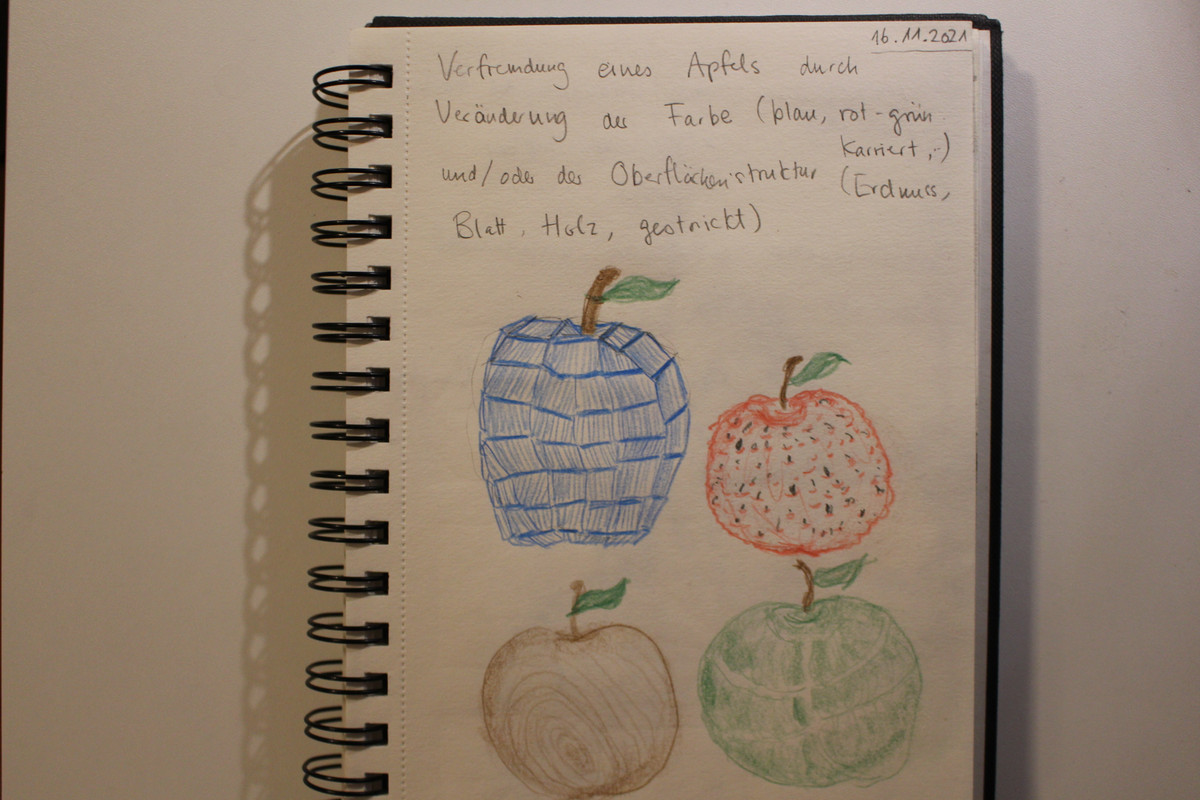 16.11.2021
Verfremdung eines Apfels durch
Veränderung der Farbe (blau, rot-grün
karriert,..)
und/oder der Oberflächenstruktur (Erdnuss,
Blatt, Holz, gestrickt)